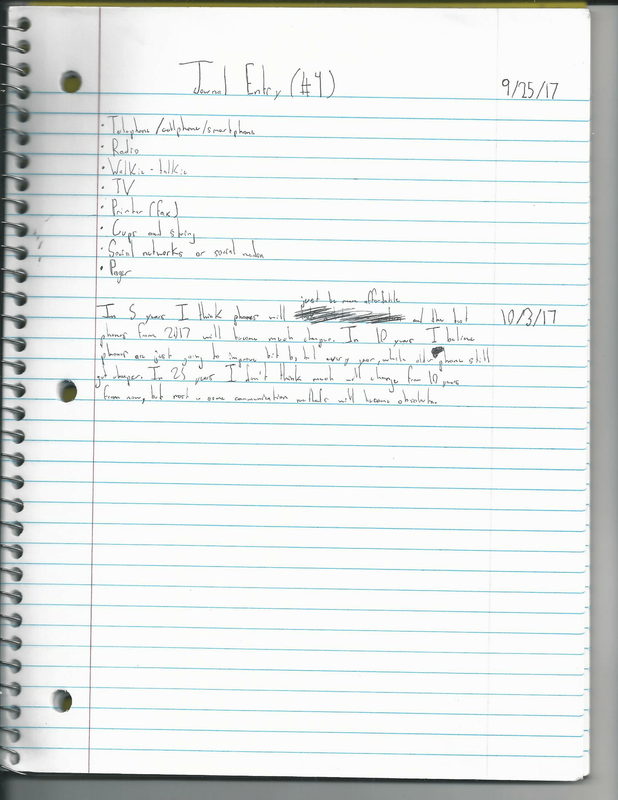 Journal Entry (#4) 9/25/17
• Telephone/cellphone/smartphone
• Radio
• Walkie-talkie
• TV
• Printer (fax)
• Cups and string
• Social networks or social media
• Pager
just be more affordable
In 5 years I think phones will and the best 10/3/17
phones from 2017 will become much cheaper. In 10 years I believe
phones are just going to improve bit by bit every year, while older phone still
get cheaper. In 25 years I don't think much will change from 10 years
from now, but most or some communication methods will become obsolete.